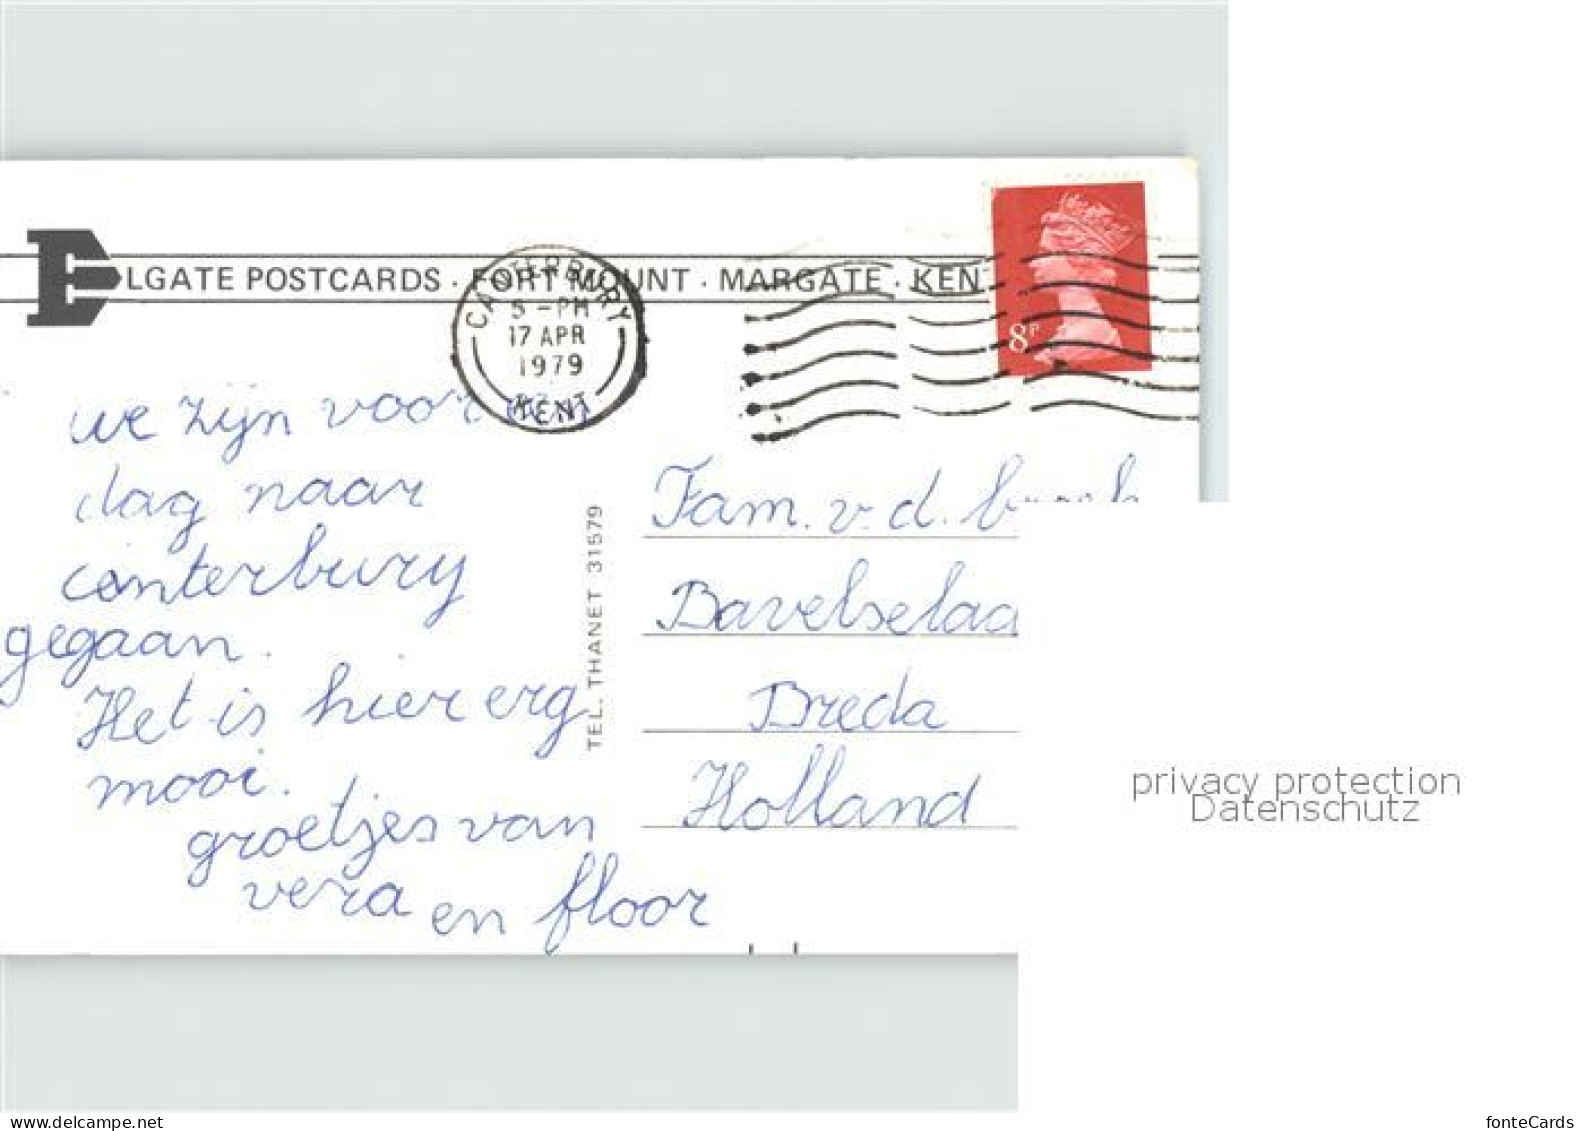 ELGATE POSTCARDS · FORT MOUNT · MARGATE · KEN
CANTERBURY
5 - PM
17 APR
1979
KENT
8P
we zijn voor een
dag naar
canterbury
gegaan.
Het is hier erg
mooi.
groetjes van
vera en floor
TEL. THANET 31579
Fam. v. d.
Bavelselaa
Breda
Holland
privacy protection
Datenschutz
www.delcampe.net
fonteCards